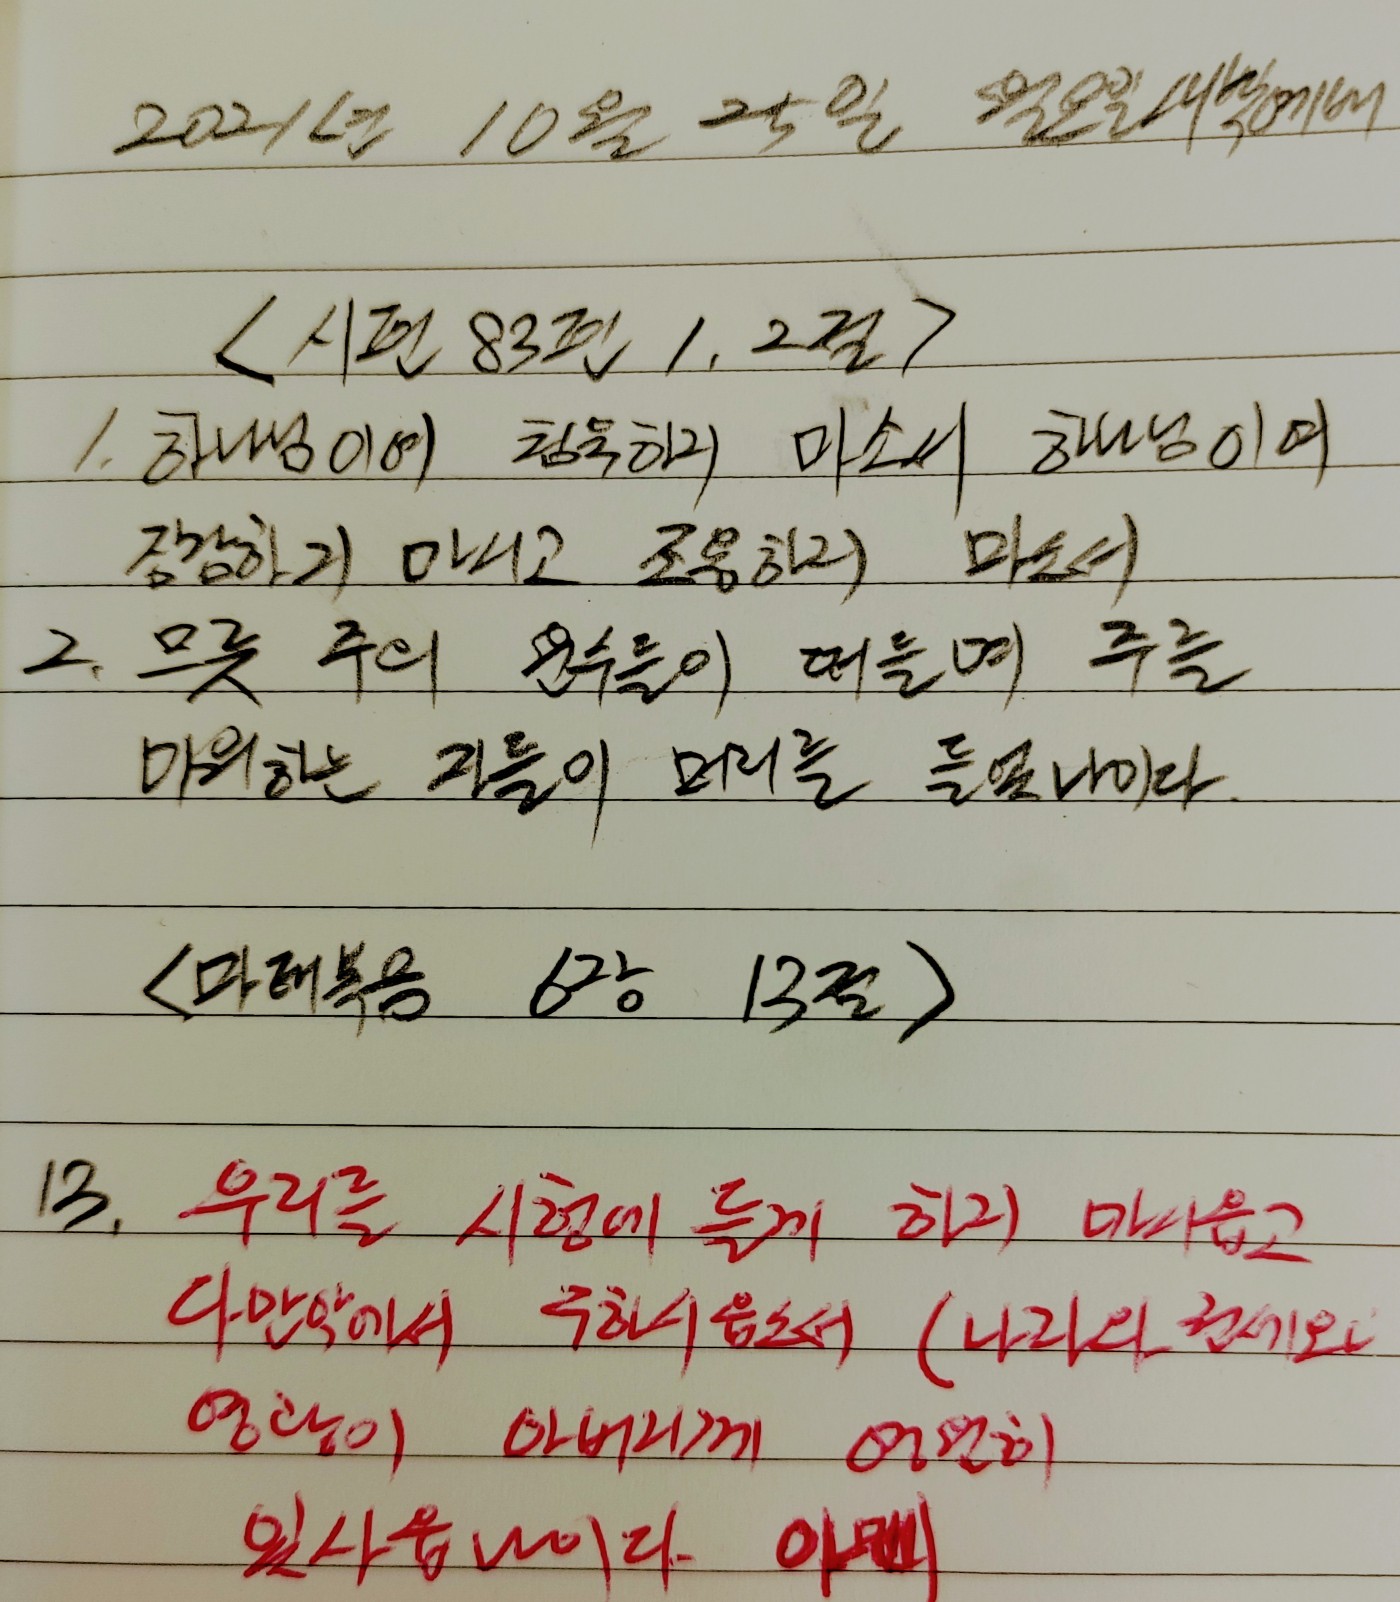 2021년 10월 25일 월요일새벽예배
<시편 83편 1. 2절>
1. 하나님이여 침묵하지 마소서 하나님이여
잠잠하지 마시고 조용하지 마소서
2. 무릇 주의 원수들이 떠들며 주를
미워하는 자들이 머리를 들었나이다.
<마태복음 6장 13절>
13. 우리를 시험에 들게 하지 마시옵고
다만악에서 구하시옵소서 (나라와 권세와
영광이 아버지께 영원히
있사옵나이다. 아멘